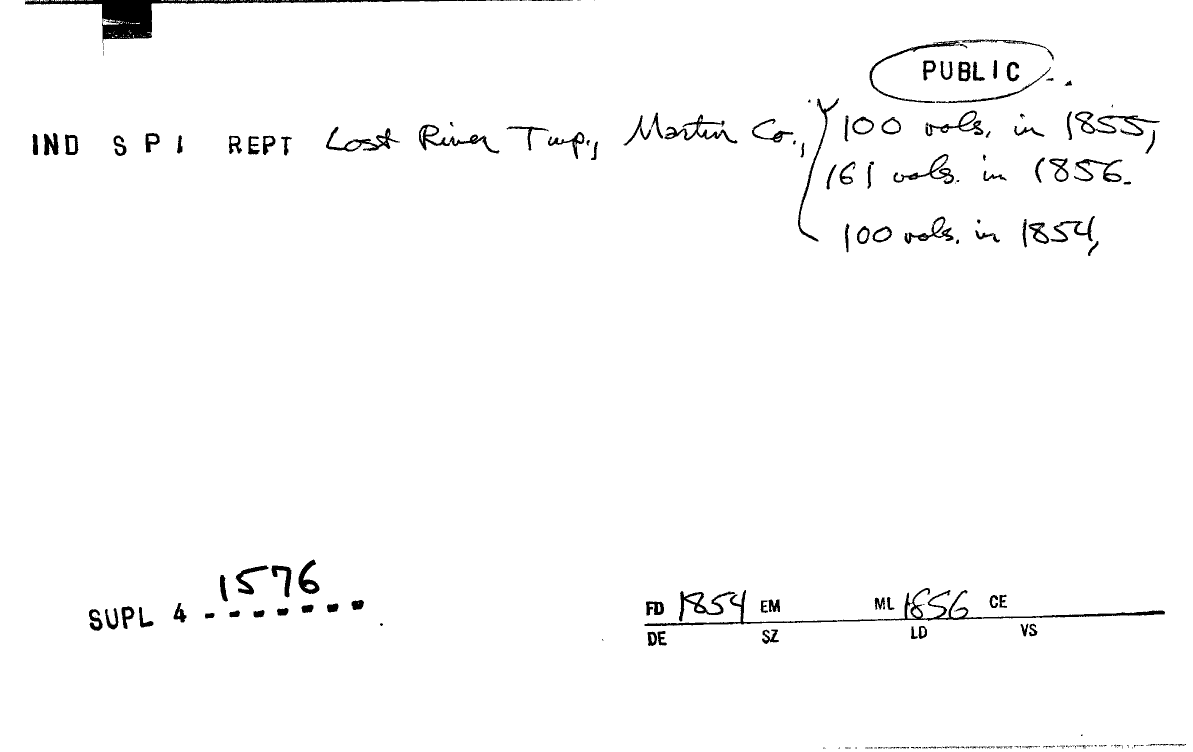 PUBLIC
IND S P I REPT Lost River Twp., Martin Co., 100 vols. in 1855,
161 vols. in 1856.
100 vols. in 1854,
1576
SUPL 4 - - - - - - -
FD 1854 EM ML 1856 CE
DE SZ LD VS